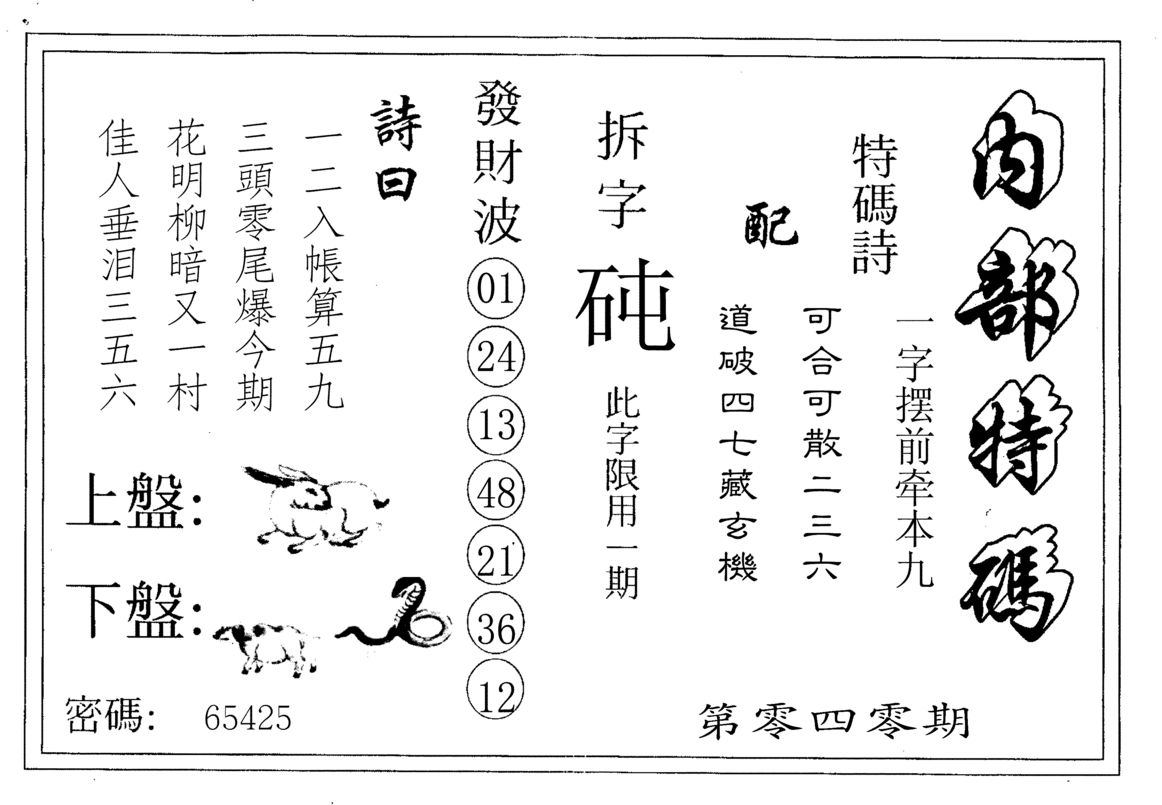 內部特碼
特碼詩
一字摆前牵本九
配
可合可散二三六
道破四七藏玄機
拆字
砘
此字限用一期
發財波
01
24
13
48
21
36
12
詩曰
一二入帳算五九
三頭零尾爆今期
花明柳暗又一村
佳人垂泪三五六
上盤：
下盤：
密碼： 65425
第零四零期